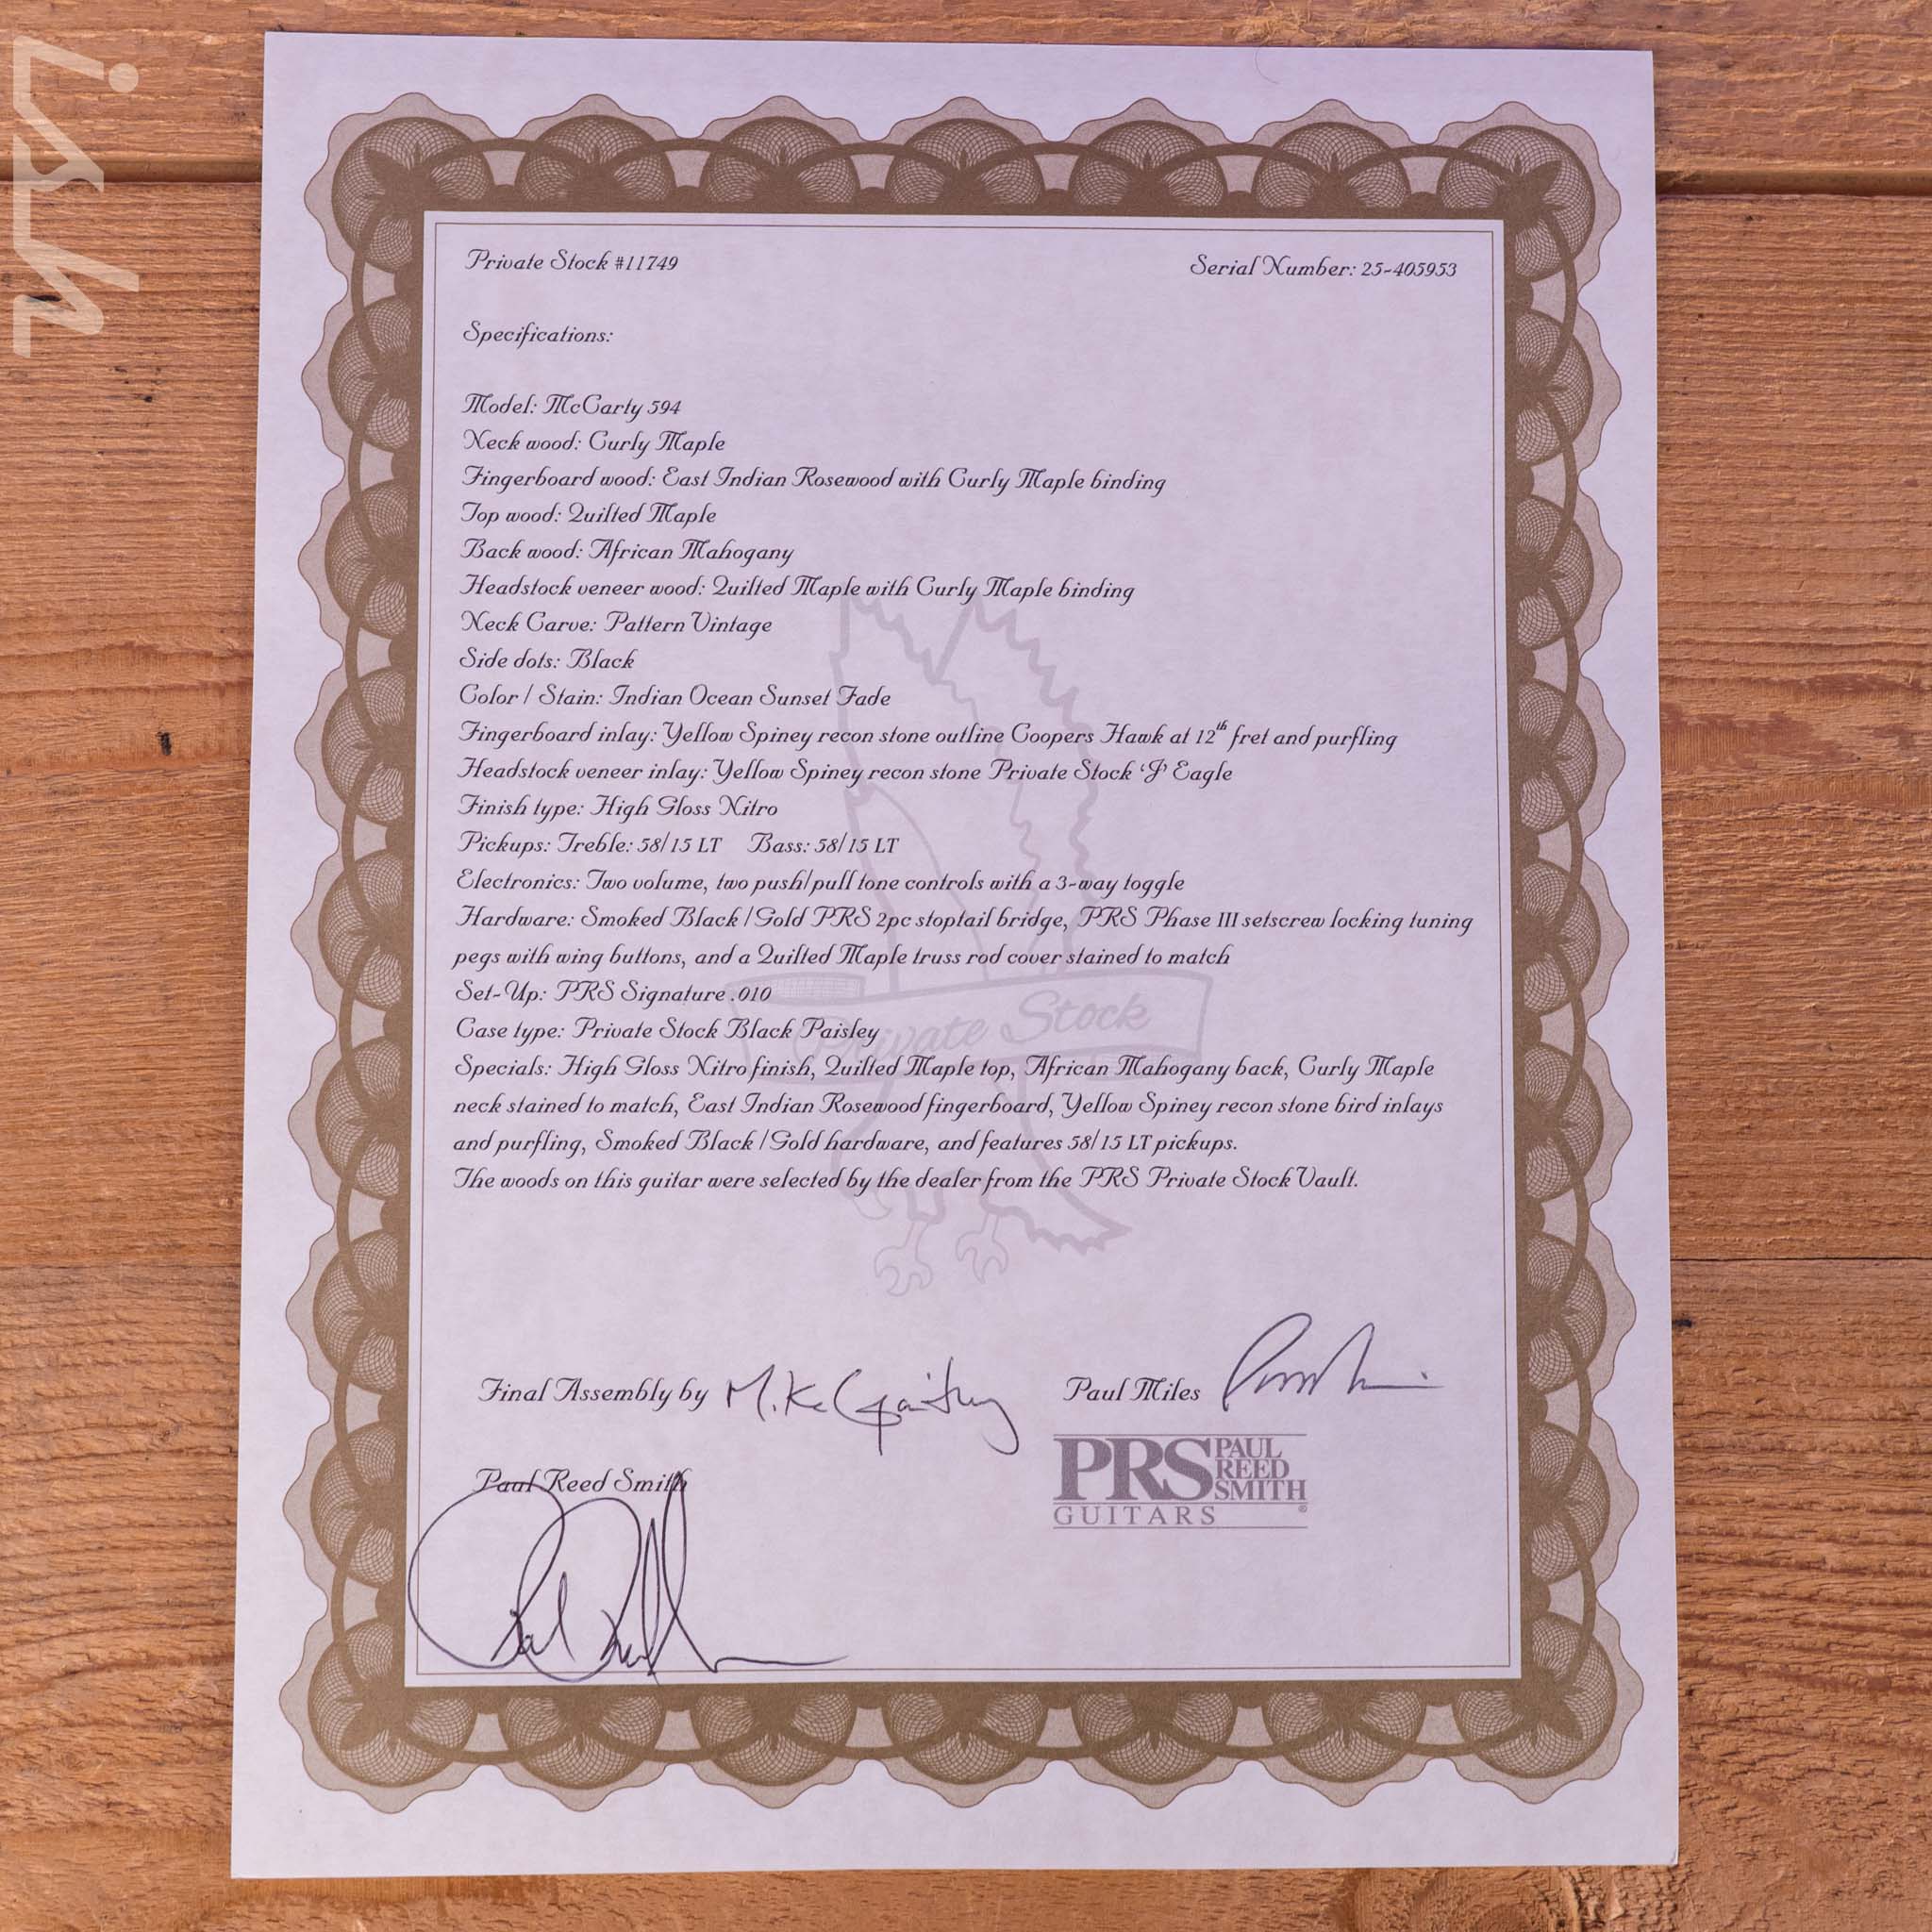 ish
Private Stock #11749
Serial Number: 25-405953
Specifications:
Model: McCarty 594
Neck wood: Curly Maple
Fingerboard wood: East Indian Rosewood with Curly Maple binding
Top wood: Quilted Maple
Back wood: African Mahogany
Headstock veneer wood: Quilted Maple with Curly Maple binding
Neck Carve: Pattern Vintage
Side dots: Black
Color / Stain: Indian Ocean Sunset Fade
Fingerboard inlay: Yellow Spiney recon stone outline Coopers Hawk at 12th fret and purfling
Headstock veneer inlay: Yellow Spiney recon stone Private Stock ‘J’ Eagle
Finish type: High Gloss Nitro
Pickups: Treble: 58/15 LT Bass: 58/15 LT
Electronics: Two volume, two push/pull tone controls with a 3-way toggle
Hardware: Smoked Black / Gold PRS 2pc stoptail bridge, PRS Phase III setscrew locking tuning
pegs with wing buttons, and a Quilted Maple truss rod cover stained to match
Set-Up: PRS Signature .010
Private Stock
Case type: Private Stock Black Paisley
Specials: High Gloss Nitro finish, Quilted Maple top, African Mahogany back, Curly Maple
neck stained to match, East Indian Rosewood fingerboard, Yellow Spiney recon stone bird inlays
and purfling, Smoked Black / Gold hardware, and features 58/15 LT pickups.
The woods on this guitar were selected by the dealer from the PRS Private Stock Vault.
Final Assembly by
Paul Miles
PRS PAUL REED SMITH
GUITARS
Paul Reed Smith